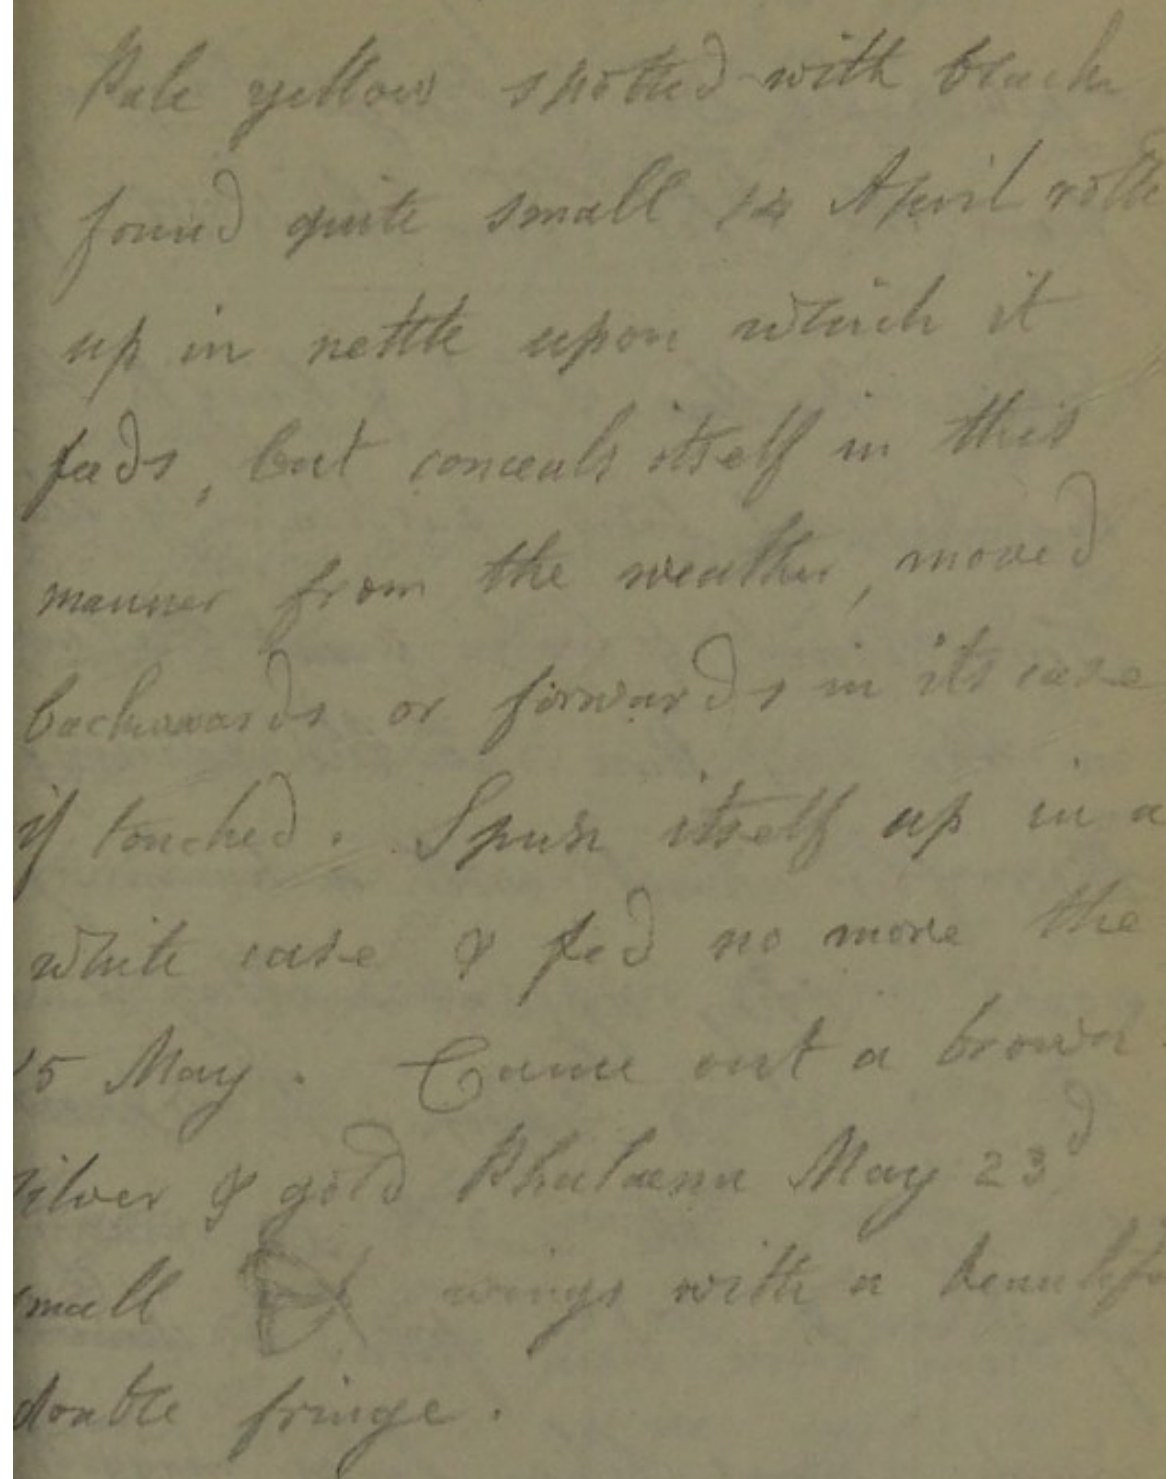 Pale yellow spotted with black
found quite small 14 April rolle
up in nettle upon which it
feeds, but conceals itself in this
manner from the weather, moved
backwards or forwards in its case
if touched. Spun itself up in a
white case & fed no more the
15 May. Came out a brown
silver & gold Phalaena May 23d
small wings with a beautifu
double fringe.